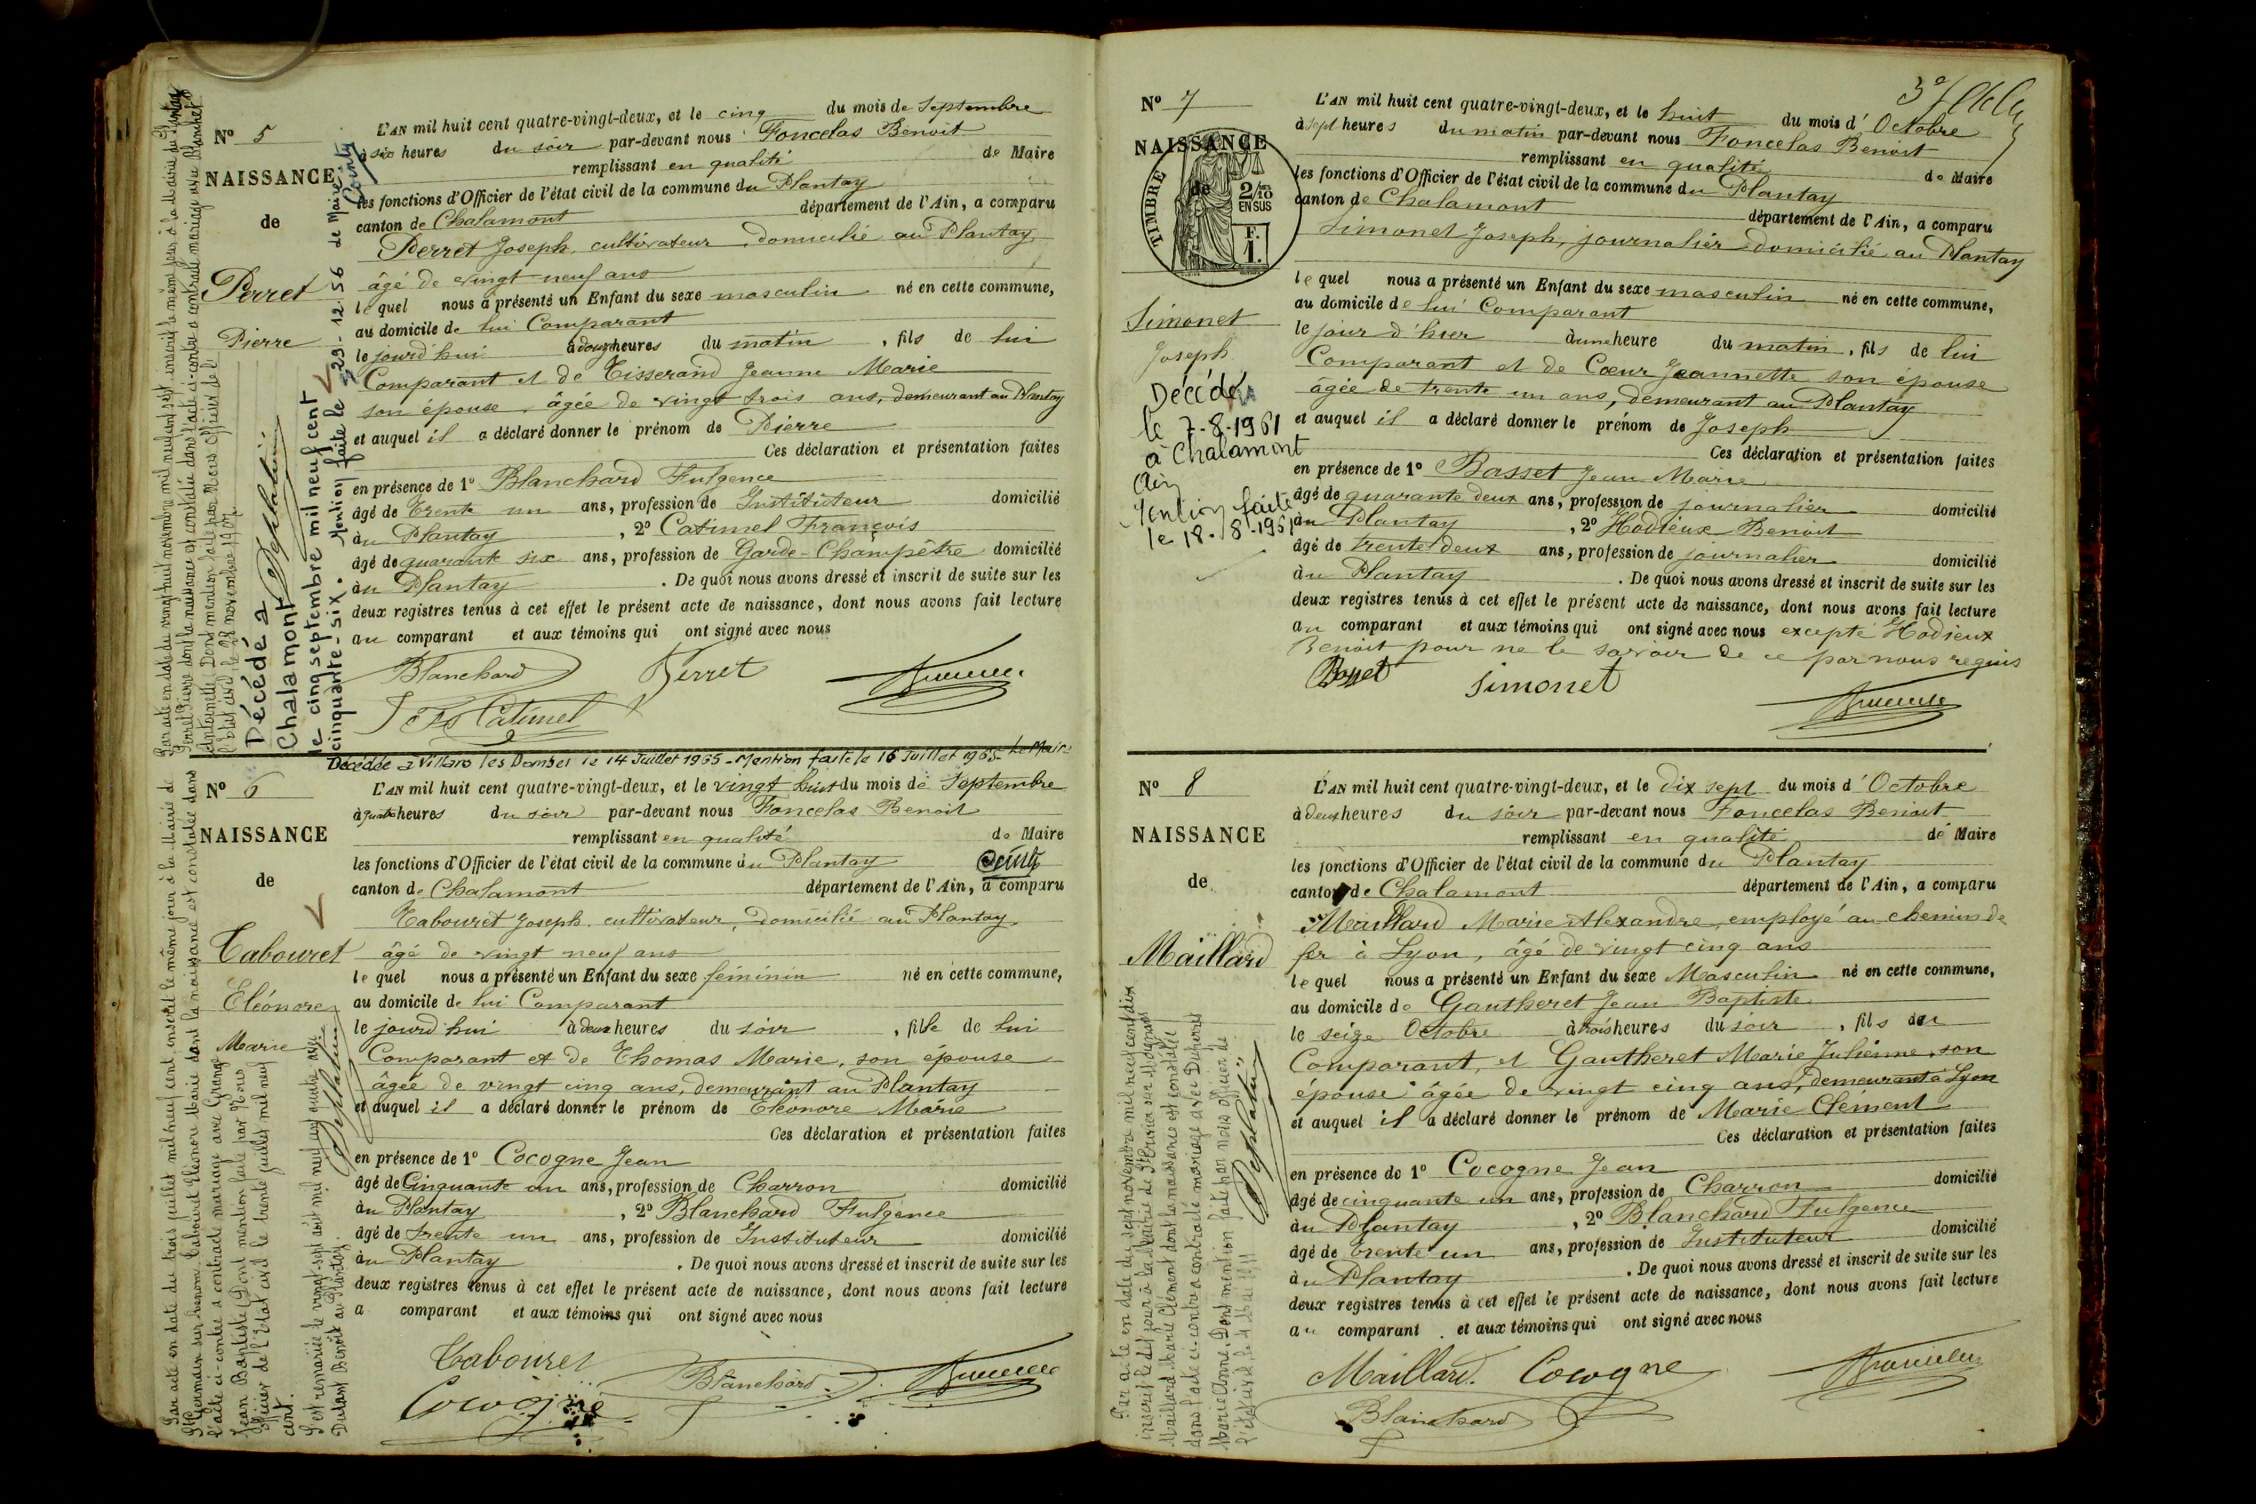 N° 5
NAISSANCE
de
Perret
Pierre
L'AN mil huit cent quatre-vingt-deux, et le cinq du mois de Septembre
à six heures du soir par-devant nous Foncelas Benoit
remplissant en qualité de Maire
les fonctions d'Officier de l'état civil de la commune du Plantay
canton de Chalamont département de l'Ain, a comparu
Perret Joseph, cultivateur, domicilié au Plantay
âgé de vingt neuf ans
lequel nous a présenté un Enfant du sexe masculin né en cette commune,
au domicile de lui Comparant
le jourd'hui à douze heures du matin, fils de lui
Comparant et de Tisserand Jeanne Marie
son épouse, âgée de vingt trois ans, demeurant au Plantay
et auquel il a déclaré donner le prénom de Pierre
Ces déclaration et présentation faites
en présence de 1° Blanchard Fulgence
âgé de trente un ans, profession de Instituteur domicilié
au Plantay, 2° Catimel François
âgé de quarante six ans, profession de Garde-Champêtre domicilié
au Plantay. De quoi nous avons dressé et inscrit de suite sur les
deux registres tenus à cet effet le présent acte de naissance, dont nous avons fait lecture
au comparant et aux témoins qui ont signé avec nous
Blanchard Perret
Catimel
Par acte en date du vingt huit novembre mil neuf cent sept inscrit le même jour à la Mairie du Plantay
Perret Pierre dont la naissance est constatée dans l'acte ci-contre a contracté mariage avec Blanchet
Antoinette. Dont mention faite par Nous Officier de
l'état civil le 28 novembre 1907
Décédé à
Chalamont
le cinq septembre mil neuf cent
cinquante-six. Mention faite le 29-12-56 de Maire
N° 6
NAISSANCE
de
Tabouret
Eléonore
Marie
Décédée à Villars les Dombes le 14 Juillet 1965 - Mention faite le 16 Juillet 1965 Le Maire
L'AN mil huit cent quatre-vingt-deux, et le vingt huit du mois de Septembre
à quatre heures du soir par-devant nous Foncelas Benoit
remplissant en qualité de Maire
les fonctions d'Officier de l'état civil de la commune du Plantay
canton de Chalamont département de l'Ain, a comparu
Tabouret Joseph, cultivateur, domicilié au Plantay
âgé de vingt neuf ans
lequel nous a présenté un Enfant du sexe féminin né en cette commune,
au domicile de lui Comparant
le jourd'hui à deux heures du soir, fille de lui
Comparant et de Thomas Marie, son épouse
âgée de vingt cinq ans, demeurant au Plantay
et auquel il a déclaré donner le prénom de Eléonore Marie
Ces déclaration et présentation faites
en présence de 1° Cocogne Jean
âgé de Cinquante un ans, profession de Charron domicilié
au Plantay, 2° Blanchard Fulgence
âgé de trente un ans, profession de Instituteur domicilié
au Plantay. De quoi nous avons dressé et inscrit de suite sur les
deux registres tenus à cet effet le présent acte de naissance, dont nous avons fait lecture
a comparant et aux témoins qui ont signé avec nous
Tabouret
Blanchard
Cocogne
Par acte en date du trois juillet mil neuf cent inscrit le même jour à la Mairie de
St Germain sur Renom, Tabouret Eléonore Marie dont la naissance est constatée dans
l'acte ci-contre a contracté mariage avec Grange
Jean Baptiste. Dont mention faite par Nous
Officier de l'Etat civil le trente juillet mil neuf
cent.
S'est remariée le vingt-sept août mil neuf cent quatre avec
Dutant Benoit au Plantay.
N° 7
NAISSANCE
de
TIMBRE
2/10 EN SUS
F. 1.
Simonet
Joseph
Décédé
le 7-8-1961
à Chalamont
Ain
Mention faite
le 18-8-1961
L'AN mil huit cent quatre-vingt-deux, et le huit du mois d'Octobre
à sept heures du matin par-devant nous Foncelas Benoit
remplissant en qualité de Maire
les fonctions d'Officier de l'état civil de la commune du Plantay
canton de Chalamont département de l'Ain, a comparu
Simonet Joseph, journalier domicilié au Plantay
lequel nous a présenté un Enfant du sexe masculin né en cette commune,
au domicile de lui Comparant
le jour d'hier à une heure du matin, fils de lui
Comparant et de Cœur Jeannette son épouse
âgée de trente un ans, demeurant au Plantay
et auquel il a déclaré donner le prénom de Joseph
Ces déclaration et présentation faites
en présence de 1° Basset Jean Marie
âgé de quarante deux ans, profession de journalier domicilié
au Plantay, 2° Hodieux Benoit
âgé de trente deux ans, profession de journalier domicilié
au Plantay. De quoi nous avons dressé et inscrit de suite sur les
deux registres tenus à cet effet le présent acte de naissance, dont nous avons fait lecture
au comparant et aux témoins qui ont signé avec nous excepté Hodieux
Benoit pour ne le savoir de ce par nous requis
Basset Simonet
N° 8
NAISSANCE
de
Maillard
L'AN mil huit cent quatre-vingt-deux, et le dix sept du mois d'Octobre
à deux heures du soir par-devant nous Foncelas Benoit
remplissant en qualité de Maire
les fonctions d'Officier de l'état civil de la commune du Plantay
canton de Chalamont département de l'Ain, a comparu
Maillard Marie Alexandre, employé au chemins de
fer à Lyon, âgé de vingt cinq ans
lequel nous a présenté un Enfant du sexe Masculin né en cette commune,
au domicile de Gautheret Jean Baptiste
le seize Octobre à trois heures du soir, fils du
Comparant, et Gautheret Marie Julienne, son
épouse âgée de vingt cinq ans, demeurant à Lyon
et auquel il a déclaré donner le prénom de Marie Clément
Ces déclaration et présentation faites
en présence de 1° Cocogne Jean
âgé de cinquante un ans, profession de Charron domicilié
au Plantay, 2° Blanchard Fulgence
âgé de trente un ans, profession de Instituteur domicilié
au Plantay. De quoi nous avons dressé et inscrit de suite sur les
deux registres tenus à cet effet le présent acte de naissance, dont nous avons fait lecture
au comparant et aux témoins qui ont signé avec nous
Maillard. Cocogne
Blanchard
Par acte en date du sept novembre mil neuf cent dix
inscrit le dit jour à la Mairie de
Maillard Marie Clément dont la naissance est constatée
dans l'acte ci-contre a contracté mariage avec
Marie Anne. Dont mention faite par nous officier de
l'état civil